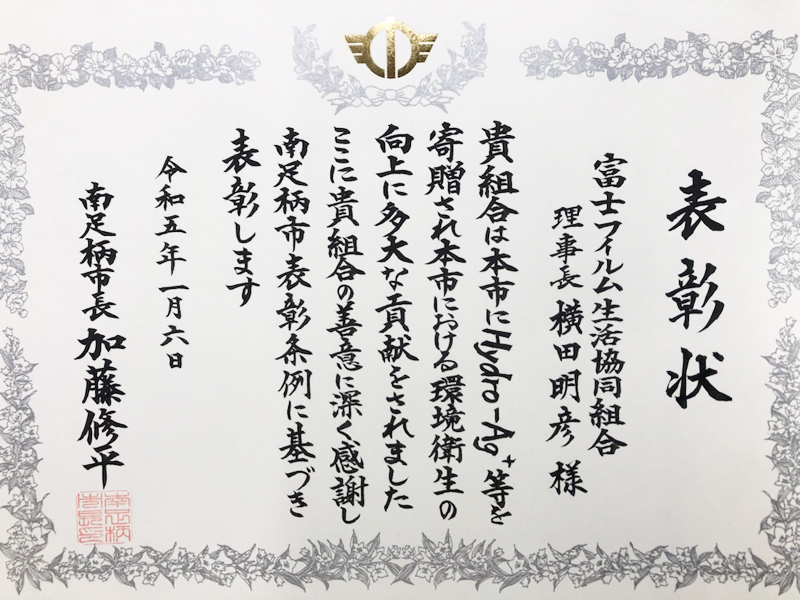 表彰状
富士フイルム生活協同組合
理事長 横田明彦 様
貴組合は本市にHydro-Ag⁺等を
寄贈され本市における環境衛生の
向上に多大な貢献をされました
ここに貴組合の善意に深く感謝し
南足柄市表彰条例に基づき
表彰します
令和五年一月六日
南足柄市長 加藤修平